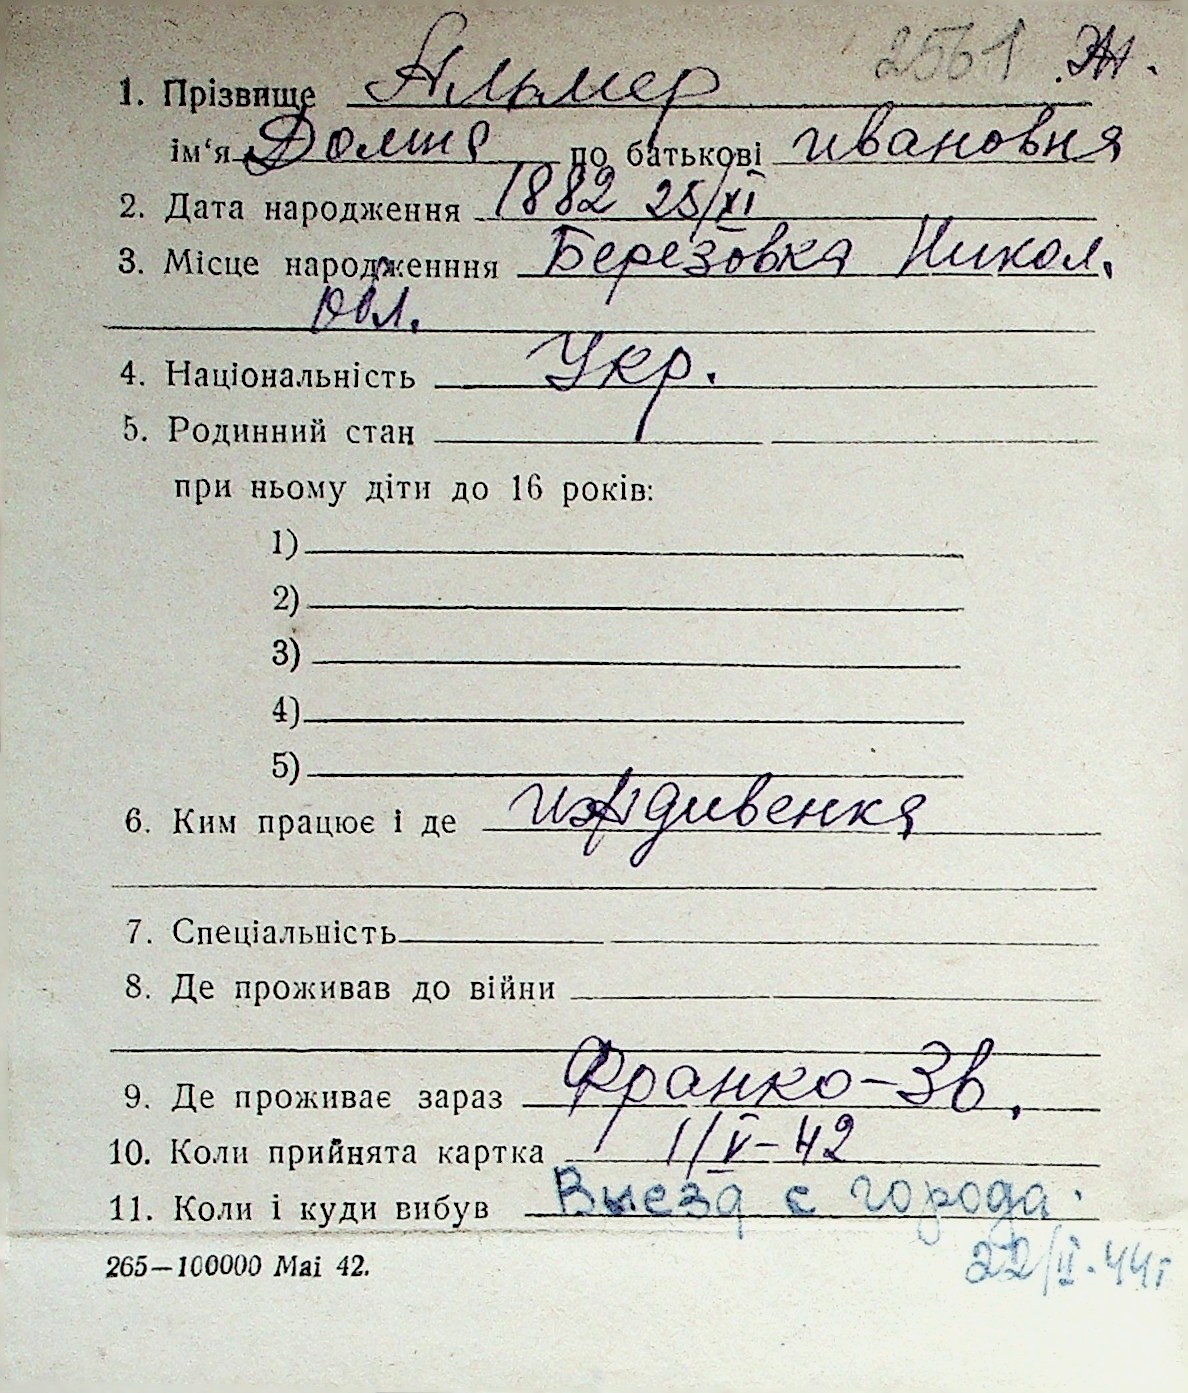 2561 Ж.
1. Прізвище Альмер
ім'я Домна по батькові ивановна
2. Дата народження 1882 25/XI
3. Місце народженння Березовка Никол.
обл.
4. Національність Укр.
5. Родинний стан
при ньому діти до 16 років:
1)
2)
3)
4)
5)
6. Ким працює і де иждивенка
7. Спеціальність
8. Де проживав до війни
9. Де проживає зараз Франко-3в.
10. Коли прийнята картка 1/V-42
11. Коли і куди вибув Выезд с города.
22/II-44г
265—100000 Mai 42.